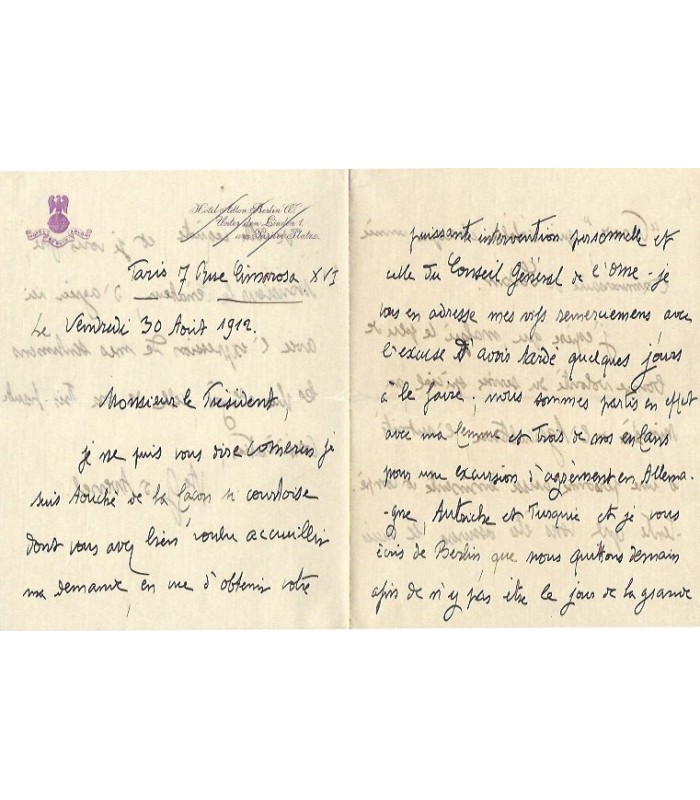 Hôtel Adlon Berlin W.
Unter den Linden 1.
am Pariser Platz.
Paris 7 Rue Cimarosa XVI
Le Vendredi 30 Août 1912.
Monsieur le Président,
je ne puis vous dire combien je
suis touché de la façon si courtoise
dont vous avez bien voulu accueillir
ma demande en vue d'obtenir votre
puissante intervention personnelle et
celle du Conseil Général de l'Orne - je
vous en adresse mes vifs remerciemens avec
l'excuse d'avois tardé quelques jours
à le faire; nous sommes partis en effet
avec ma femme et trois de nos enfans
pour une excursion d'agrément en Allema-
-gne, Autriche et Turquie et je vous
écris de Berlin que nous quittons demain
afin de n'y pas être le jour de la grande